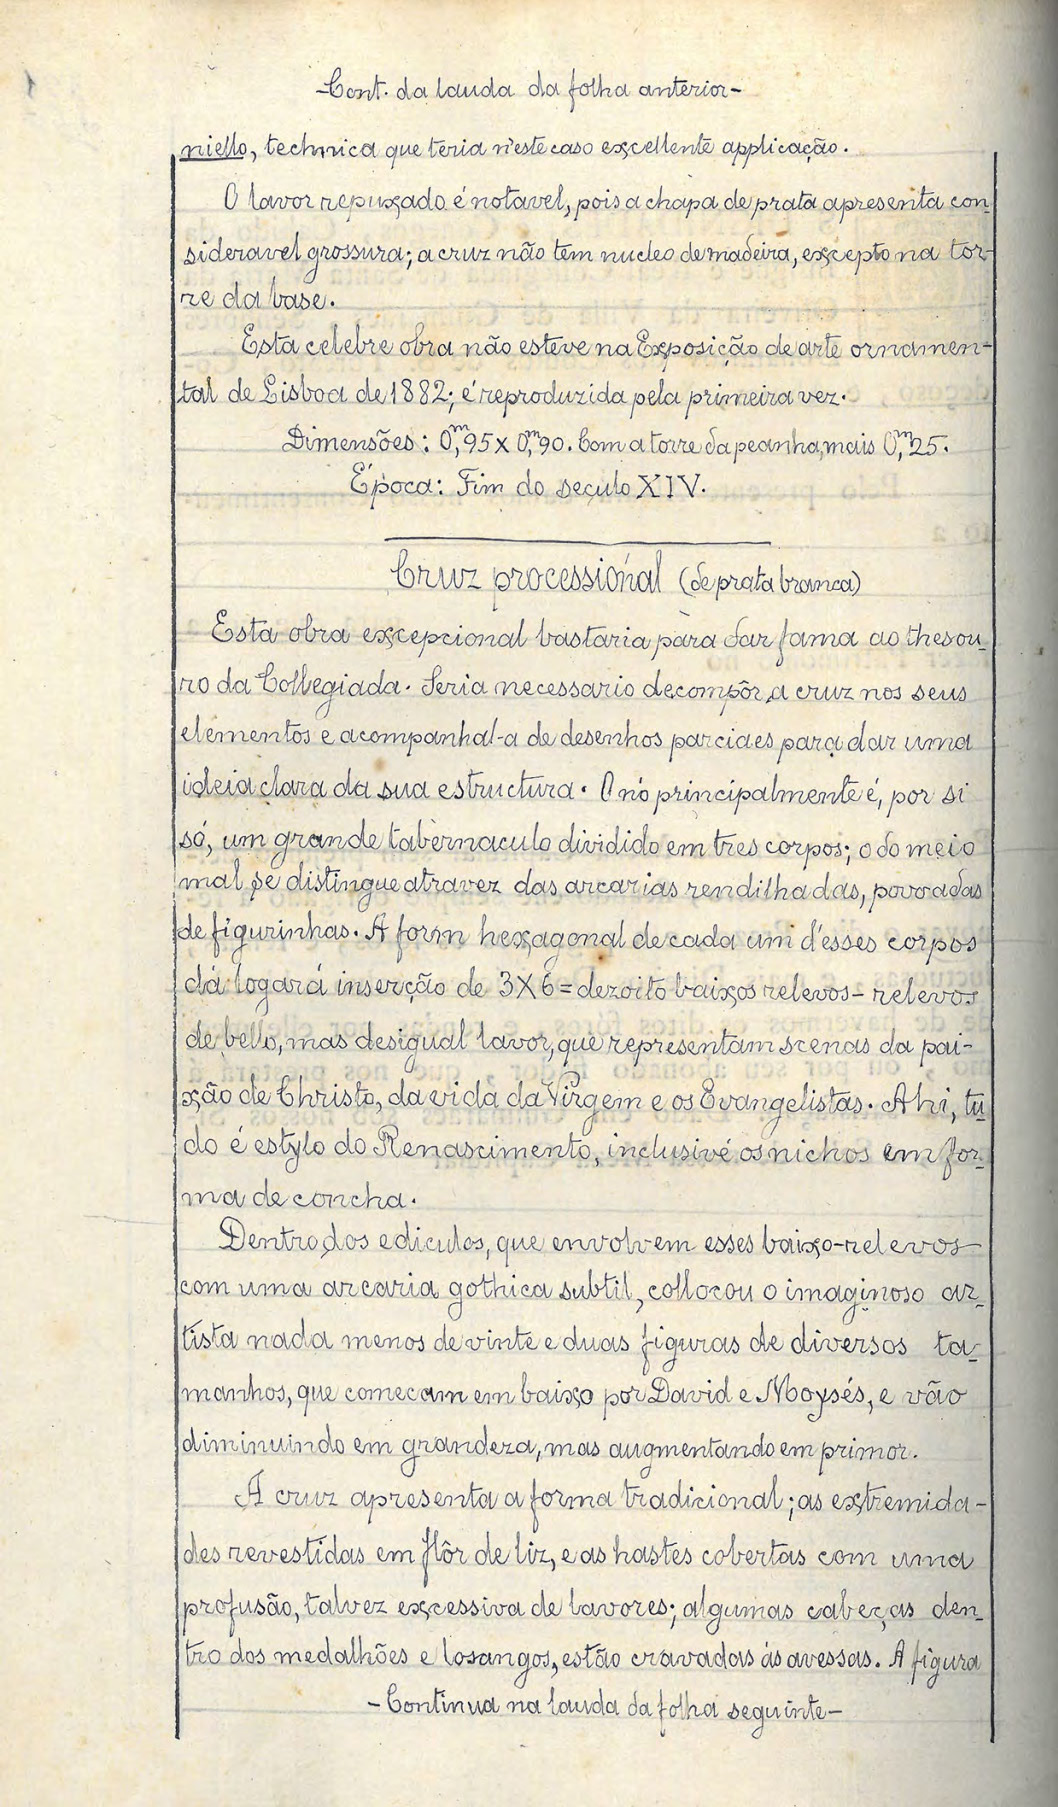 -Cont. da lauda da folha anterior-
niello, technica que teria n'este caso excellente applicação.
O lavor repuxado é notavel, pois a chapa de prata apresenta con-
sideravel grossura; a cruz não tem nucleo de madeira, excepto na tor-
re da base.
Esta celebre obra não esteve na Exposição de arte ornamen-
tal de Lisboa de 1882; é reproduzida pela primeira vez.
Dimensões: 0,m95 x 0,m90. Com a torre da peanha, mais 0,m25.
Época: Fim do seculo XIV.
Cruz processional (de prata branca)
Esta obra excepcional bastaria para dar fama ao thesou-
ro da Collegiada. Seria necessario decompôr a cruz nos seus
elementos e acompanhal-a de desenhos parciaes para dar uma
ideia clara da sua estructura. O nó principalmente é, por si
só, um grande tabernaculo dividido em tres corpos; o do meio
mal se distingue atravez das arcarias rendilhadas, povoadas
de figurinhas. A form hexagonal de cada um d'esses corpos
dá logar á inserção de 3X6=dezoito baixos relevos-relevos
de bello, mas desigual lavor, que representam scenas da pai-
xão de Christo, da vida da Virgem e os Evangelistas. Ahi, tu-
do é estylo do Renascimento, inclusivé os nichos em for-
ma de concha.
Dentro dos ediculos, que envolvem esses baixo-relevos
com uma arcaria gothica subtil, collocou o imaginoso ar-
tista nada menos de vinte e duas figuras de diversos ta-
manhos, que comecam em baixo por David e Moysés, e vão
diminuindo em grandeza, mas augmentando em primor.
A cruz apresenta a forma tradicional; as extremida-
des revestidas em flôr de liz, e as hastes cobertas com uma
profusão, talvez excessiva de lavores; algumas cabeças den-
tro dos medalhões e losangos, estão cravadas ás avessas. A figura
-Continua na lauda da folha seguinte-